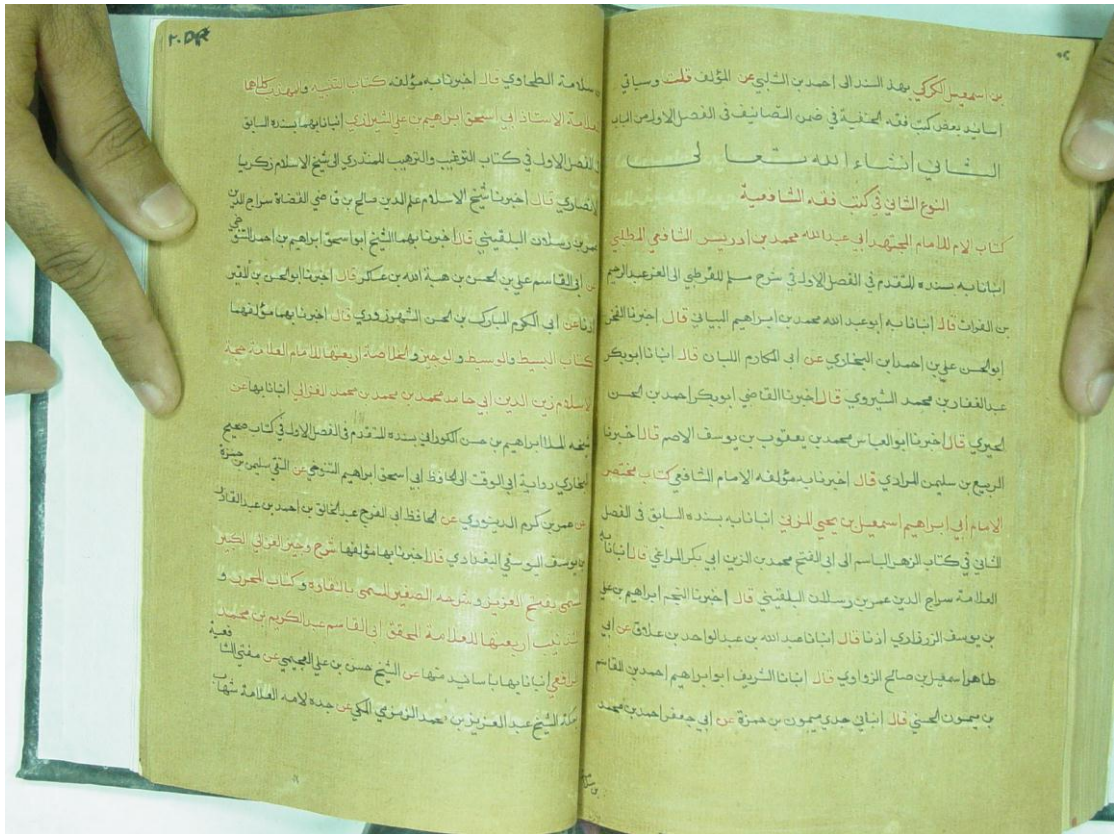 بن اسمعيل الكركي بهذا السند الى احمد بن الشلبي عن المؤلف قلت وسياتي
اسانيد بعض كتب فقه الحنفية في ضمن المصانيف في الفصل الاول من الباب
الثاني إنشاء الله تعالى
النوع الثاني في كتب فقه الشافعية
كتاب الام للامام المجتهد ابي عبد الله محمد بن ادريس الشافعي المطلبي
انبانا به بسنده المتقدم في الفصل الاول في شرح مسلم للقرطبي الى العز عبد الرحيم
بن الفرات قال انبانا به أبو عبد الله محمد بن إبراهيم البياني قال اخبرنا الفخر
ابو الحسن علي بن احمد ابن البخاري عن ابي المكارم اللبان قال انبانا ابو بكر
عبد الغفار بن محمد الشيروي قال اخبرنا القاضي ابو بكر احمد بن الحسن
الحيري قال اخبرنا ابو العباس محمد بن يعقوب بن يوسف الاصم قال اخبرنا
الربيع بن سليمن المرادي قال اخبرنا به مؤلفه الامام الشافعي كتاب مختصر
الامام أبي إبراهيم اسمعيل بن يحيى المزني انبانا به بسنده السابق في الفصل
الثاني في كتاب الزهر الباسم الى ابي الفتح محمد بن الزين ابي بكر المراغي قال أنبانا به
العلامة سراج الدين عمر بن رسلان البلقيني قال اخبرنا النجم ابراهيم بن علي
بن يوسف الزرزاري اذنا قال انبانا عبد الله بن عبد الواحد بن علاق عن ابي
طاهر اسمعيل بن صالح الزواوي قال انبانا الشريف ابو ابراهيم احمد بن القاسم
بن ميمون الحسني قال انباني جدي ميمون بن حمزة عن ابي جعفر احمد بن محمد
بن سلامة الطحاوي قال اخبرنا به مؤلفه كتاب التنبيه والمهذب كلاهما
للعلامة الاستاذ ابي اسحق ابراهيم بن علي الشيرازي انبانا بهما بسنده السابق
في الفصل الاول في كتاب الترغيب والترهيب للمنذري الى شيخ الاسلام زكريا
الانصاري قال اخبرنا شيخ الاسلام علم الدين صالح بن قاضي القضاة سراج الدين
عمر بن رسلان البلقيني قال اخبرنا بهما الشيخ ابو اسحق ابراهيم بن احمد التنوخي
عن ابي القاسم علي بن الحسن بن هبة الله بن عساكر قال اخبرنا ابو الحسن بن المقير
اذنا عن ابي الكرم المبارك بن الحسن الشهرزوري قال اخبرنا بهما مؤلفهما
كتاب البسيط والوسيط والوجيز والخلاصة اربعتها للامام العلامة حجة
الاسلام زين الدين ابي حامد محمد بن محمد بن محمد الغزالي انبانا بها عن
شيخه الملا ابراهيم بن حسن الكوراني بسنده المتقدم في الفصل الاول في كتاب صحيح
البخاري رواية ابي الوقت الى الحافظ ابي اسحق ابراهيم التنوخي عن التقي سليمن بن حمزة
عن عمر بن كرم الدينوري عن الحافظ ابي الفرج عبد الخالق بن احمد بن عبد القادر
بن يوسف اليوسفي البغدادي قال اخبرنا بها مؤلفها شرح وجيز الغزالي الكبير
المسمى بفتح العزيز وشرحه الصغير المسمى بالنقاوة وكتاب المحرر و
التذنيب اربعتها للعلامة المحقق ابي القاسم عبد الكريم بن محمد
الرافعي انبانا بها باسانيد منها عن الشيخ حسن بن علي العجيمي عن مفتي الشافعية
بمكة الشيخ عبد العزيز بن محمد الزمزمي المكي عن جده لامه العلامة شهاب